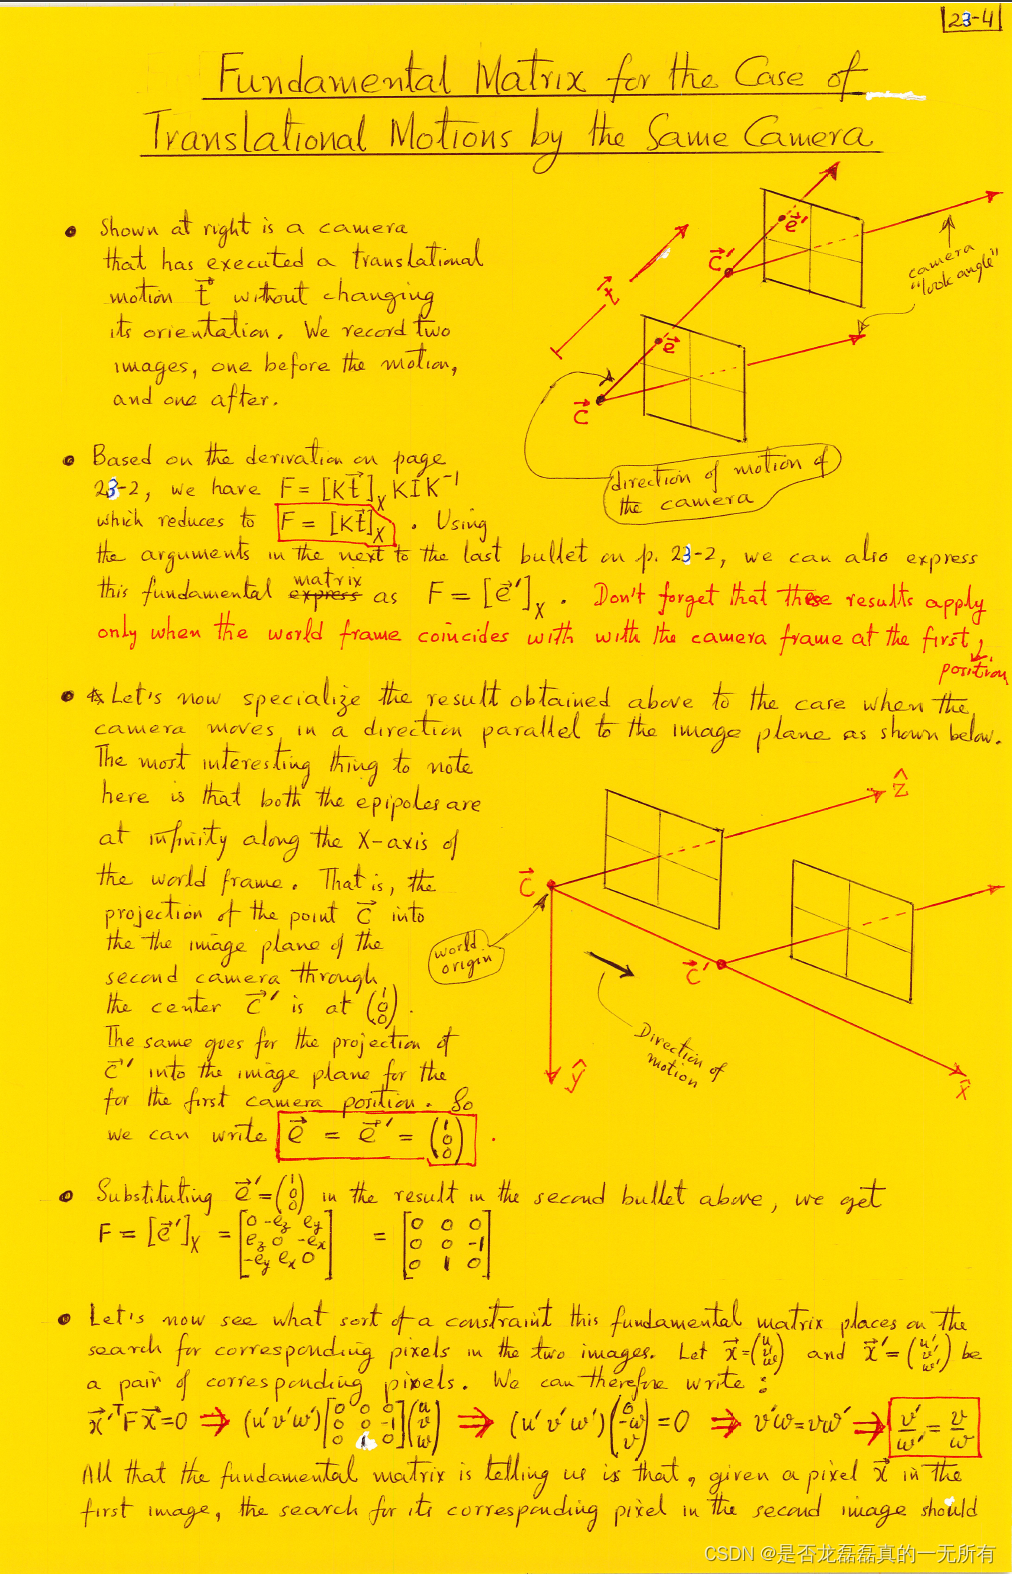 23-4
Fundamental Matrix for the Case of
Translational Motions by the Same Camera
• Shown at right is a camera
that has executed a translational
motion t⃗ without changing
its orientation. We record two
images, one before the motion,
and one after.
t⃗
C⃗'
e⃗'
camera
"look angle"
e⃗
C⃗
direction of motion of
the camera
• Based on the derivation on page
23-2, we have F = [Kt⃗]ₓ K I K⁻¹
which reduces to F = [Kt⃗]ₓ . Using
the arguments in the next to the last bullet on p. 23-2, we can also express
this fundamental matrix express as F = [e⃗']ₓ. Don't forget that these results apply
only when the world frame coincides with with the camera frame at the first
position
• Let's now specialize the result obtained above to the case when the
camera moves in a direction parallel to the image plane as shown below.
The most interesting thing to note
here is that both the epipoles are
at infinity along the X-axis of
the world frame. That is, the
projection of the point C⃗ into
the the image plane of the
second camera through
the center C⃗' is at (1 0 0).
The same goes for the projection of
C⃗' into the image plane for the
for the first camera position. So
we can write e⃗ = e⃗' = (1 0 0).
Ẑ
C⃗
world
origin
C⃗'
Direction of
motion
Ŷ
X̂
• Substituting e⃗' = (1 0 0) in the result in the second bullet above, we get
F = [e⃗']ₓ = [0 -e_z e_y; e_z 0 -e_x; -e_y e_x 0] = [0 0 0; 0 0 -1; 0 1 0]
• Let's now see what sort of a constraint this fundamental matrix places on the
search for corresponding pixels in the two images. Let x⃗ = (u v w) and x⃗' = (u' v' w') be
a pair of corresponding pixels. We can therefore write :
x⃗'ᵀF x⃗ = 0 ⇒ (u' v' w')[0 0 0; 0 0 -1; 0 1 0](u v w) ⇒ (u' v' w')(0 -w v) = 0 ⇒ v'w = vw' ⇒ v'/w' = v/w
All that the fundamental matrix is telling us is that, given a pixel x⃗ in the
first image, the search for its corresponding pixel in the second image should
CSDN @是否龙磊磊真的一无所有